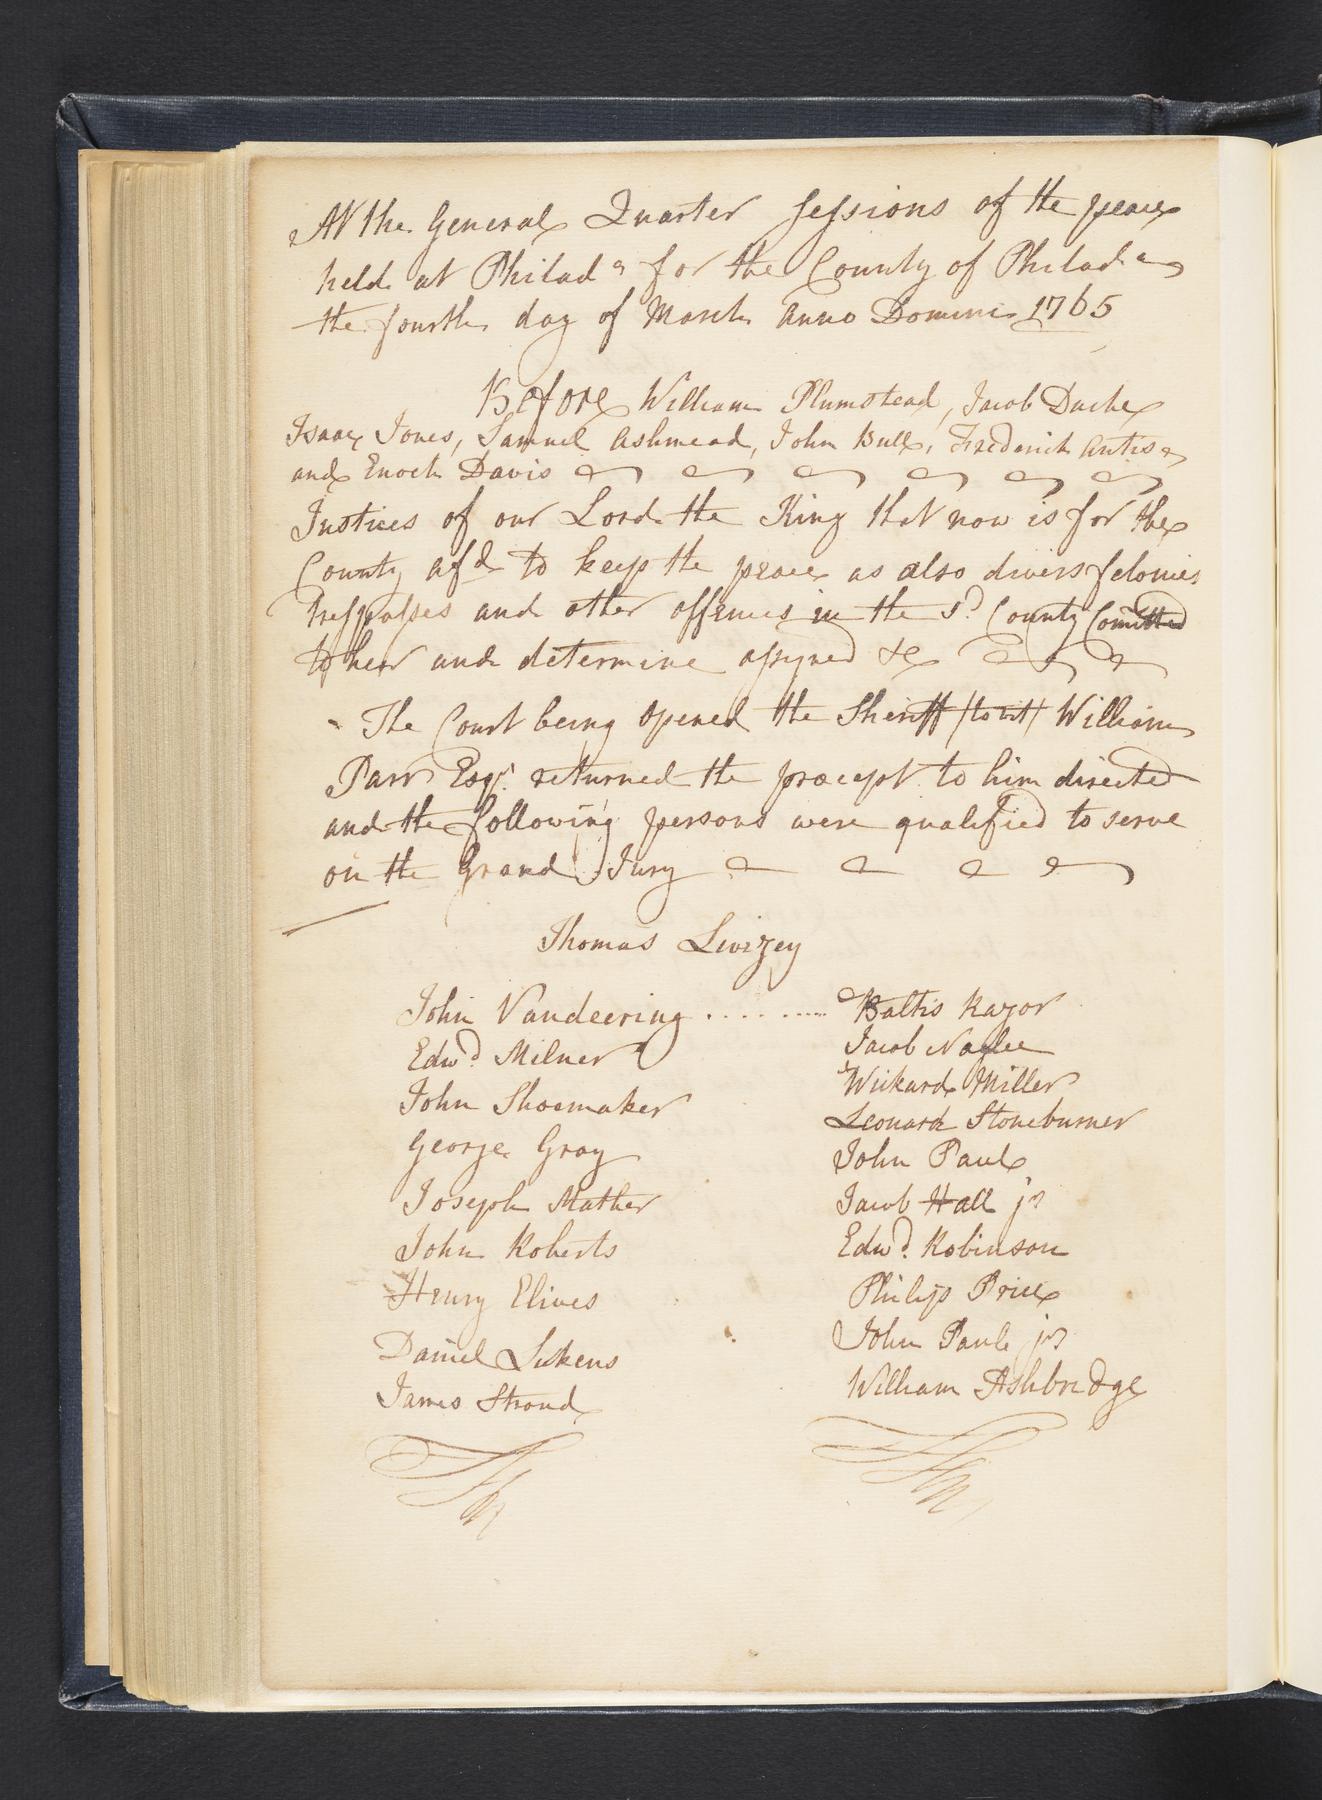 At the General Quarter Sessions of the peace
held at Philada for the County of Philada
the fourth day of March Anno Domini 1765
Before William Plumstead, Jacob Duche
Isaac Jones, Samuel Ashmead, John Bull, Frederick Antis
and Enoch Davis
Justices of our Lord the King that now is for the
County afd to keep the peace as also divers felonies
trespasses and other offences in the sd County Comitted
to hear and determine assigned &c
The Court being opened the Sheriff /to wit/ William
Parr Esqr. returned the precept to him directed
and the following persons were qualified to serve
on the Grand Jury
Thomas Livezey
John Vandeering ........ Baltis Razor
Edwd Milner Jacob Naglee
John Shoemaker Wickard Miller
George Gray Leonard Stoneburner
Joseph Mather John Paul
John Roberts Jacob Hall jr
Henry Elives Edwd. Robinson
Daniel Lukens Philip Price
James Stroud John Paul jr
William Ashbridge